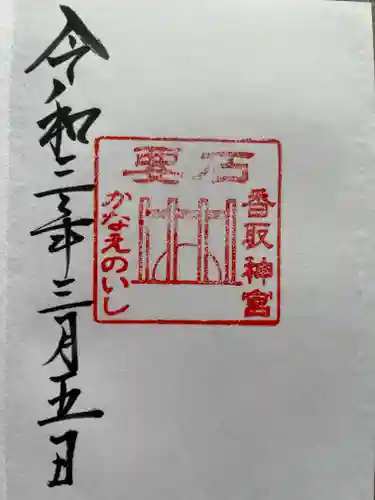 要石
香取神宮
かなえのいし
令和二年三月五日